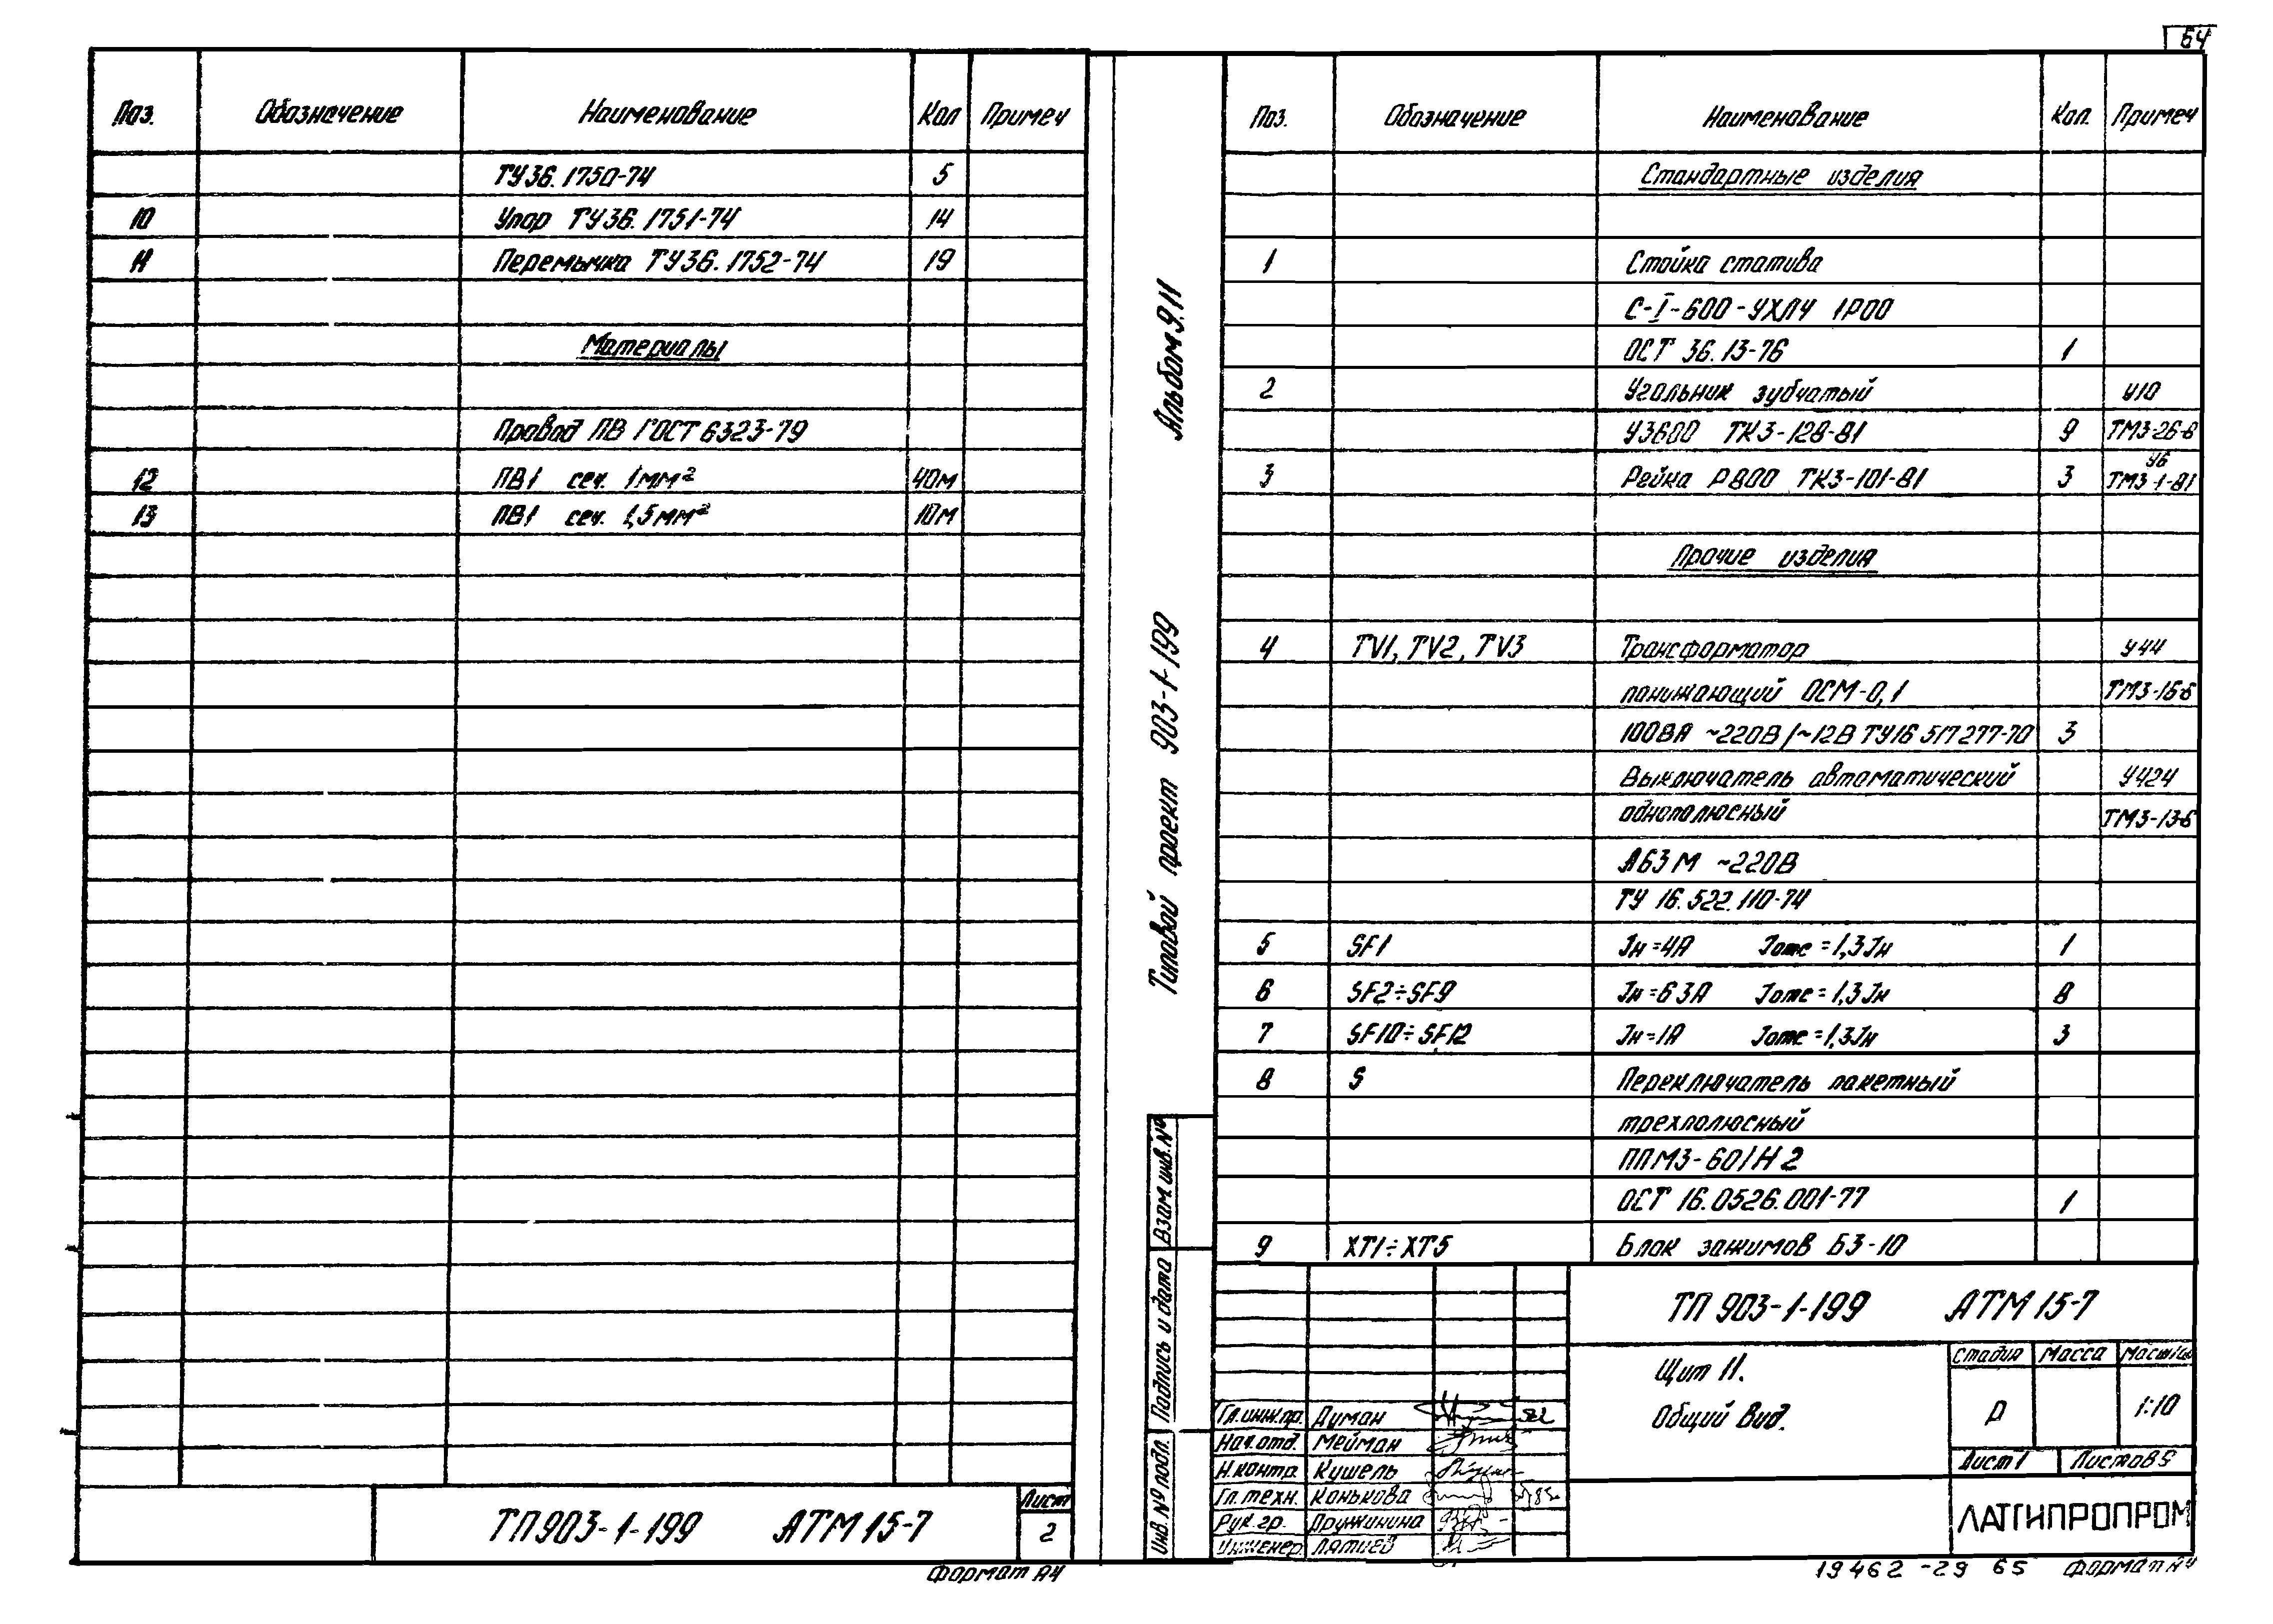 64
Поз. Обозначение Наименование Кол Примеч
ТУ36.1750-74 5
10 Упор ТУ36.1751-74 14
11 Перемычка ТУ36.1752-74 19
Материалы
Провод ПВ ГОСТ 6323-79
12 ПВ1 сеч. 1мм² 40м
13 ПВ1 сеч. 1,5мм² 10м
ТП903-1-199 АТМ15-7
Лист
2
Формат А4
Альбом 9.11
Типовой проект 903-1-199
Взам инв. №
Подпись и дата
Инв. № подл.
Поз. Обозначение Наименование Кол. Примеч
Стандартные изделия
1 Стойка статива
С-I-600-УХЛ4 IP00
ОСТ 36.13-76 1
2 Угольник зубчатый У10
УЗ600 ТК3-128-81 9 ТМ3-26-8
3 Рейка Р800 ТК3-101-81 3 У6
ТМ3-1-81
Прочие изделия
4 TV1, TV2, TV3 Трансформатор У44
понижающий ОСМ-0,1 ТМ3-15-6
100ВА ~220В/~12В ТУ16 517 277-70 3
Выключатель автоматический У424
однополюсный ТМ3-13-6
А63М ~220В
ТУ 16.522.110-74
5 SF1 Iн=4А Iотс=1,3Iн 1
6 SF2÷SF9 Iн=63А Iотс=1,3Iн 8
7 SF10÷SF12 Iн=1А Iотс=1,3Iн 3
8 S Переключатель пакетный
трехполюсный
ППМ3-60/Н2
ОСТ 16.0526.001-77 1
9 XT1÷XT5 Блок зажимов БЗ-10
ТП 903-1-199 АТМ 15-7
Щит 11.
Общий вид.
Стадия Масса Масштаб
Р 1:10
Лист 1 Листов 5
ЛАТГИПРОПРОМ
Гл.инж.пр. Думан
Нач.отд. Мейман
Н.контр. Кушель
Гл.техн. Конькова
Рук.гр. Дружинина
Инженер.
19462-29 65 Формат А4